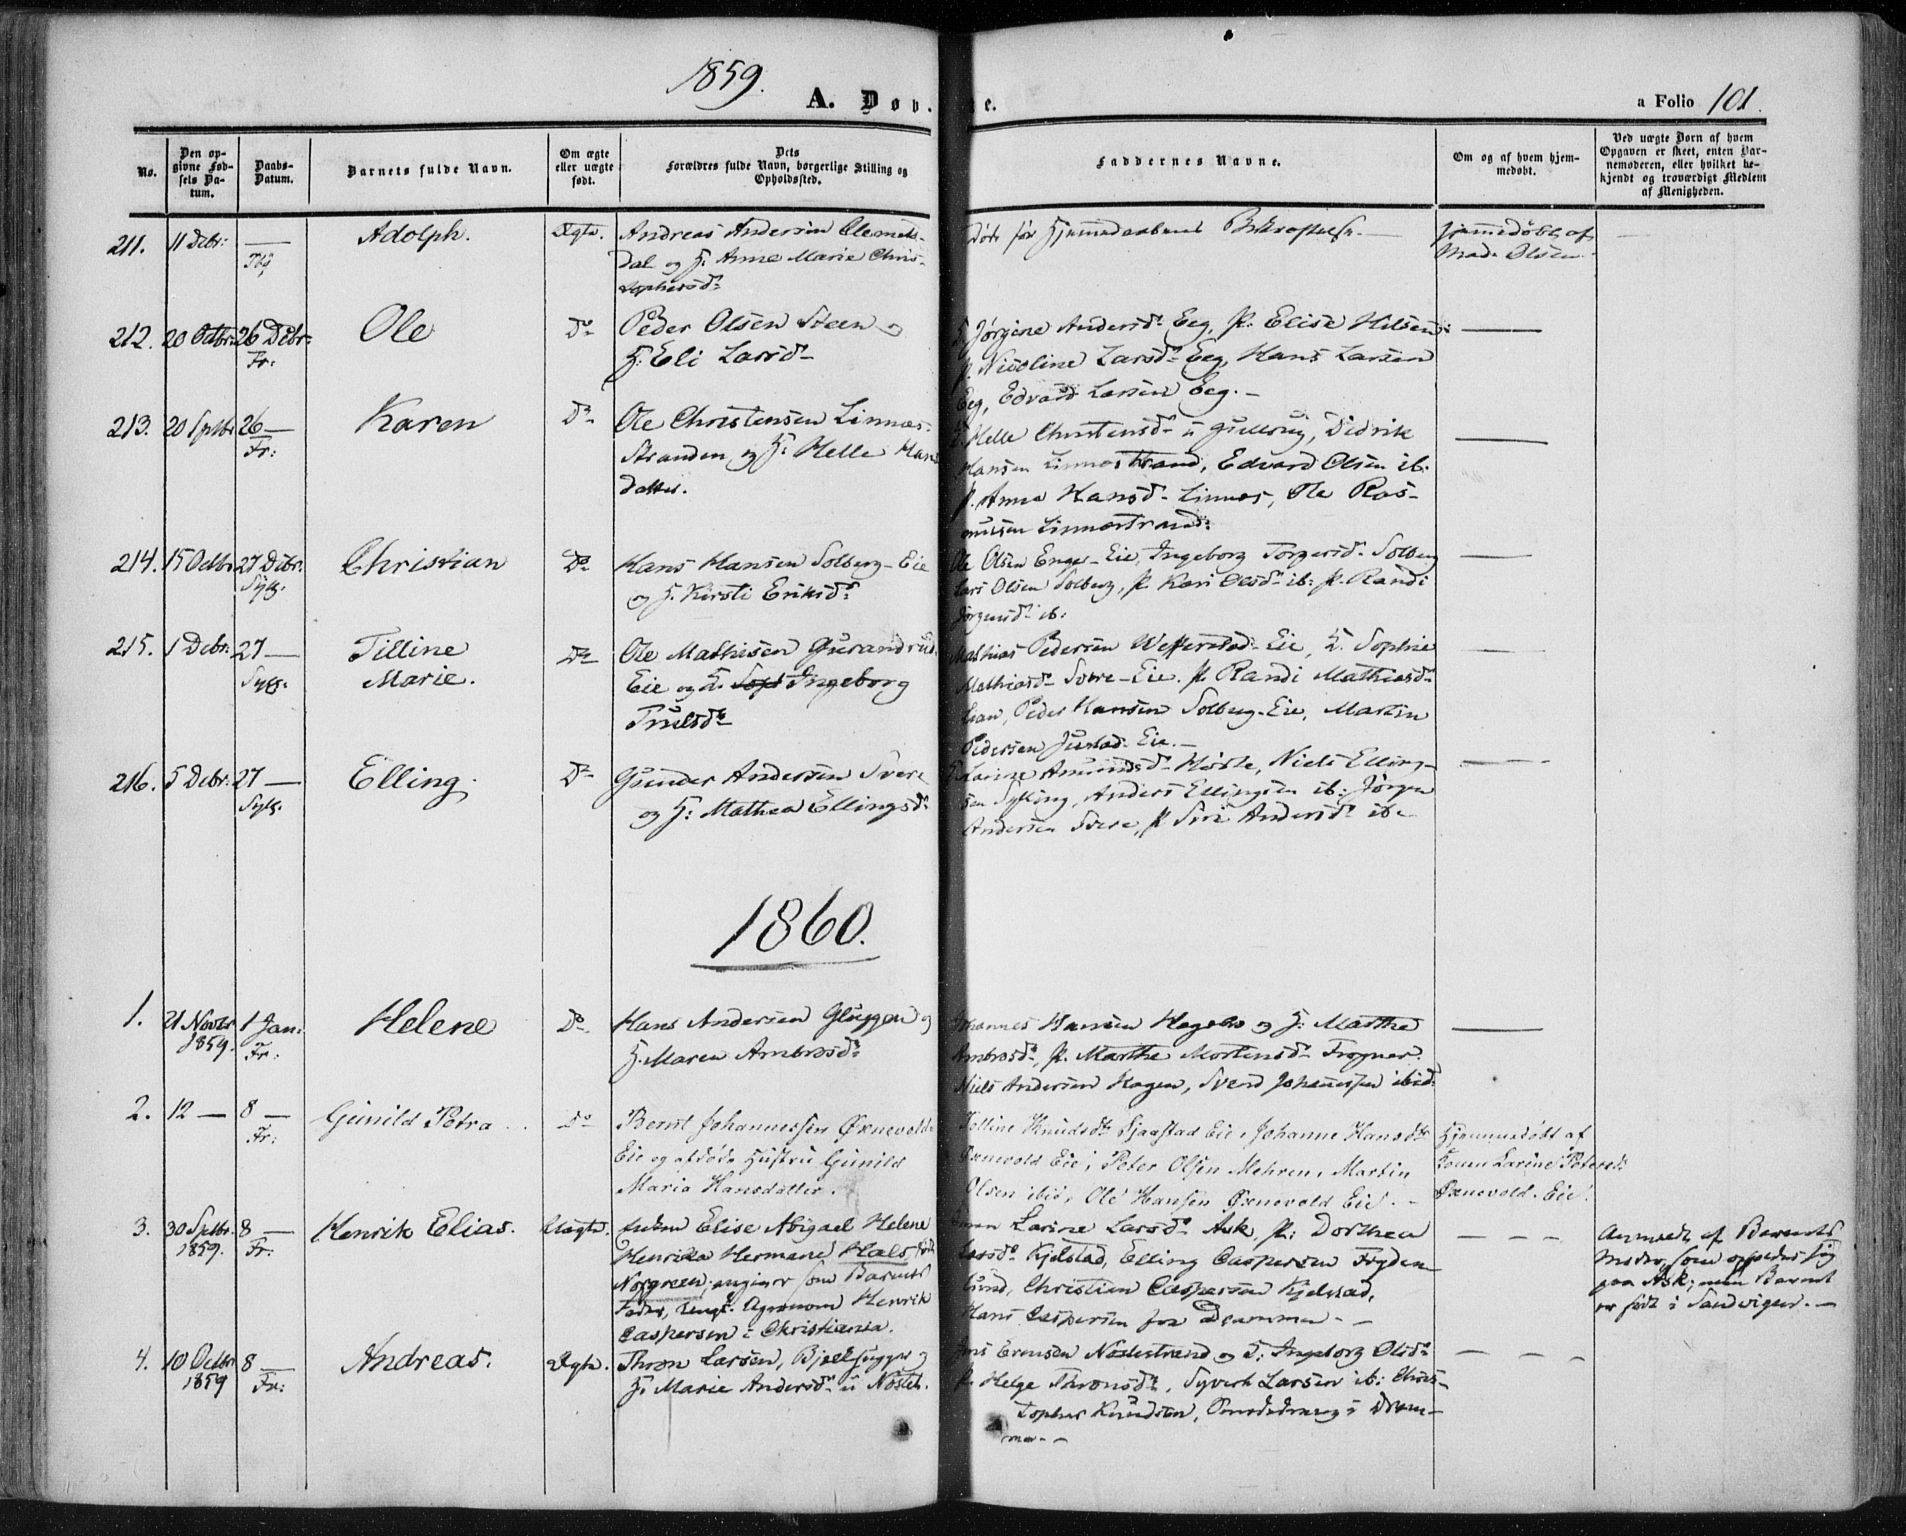 1859.
A. Døb- te.
a Folio 101.
No.
Den op-
givne Fød-
sels Da-
tum.
Daabs-
Datum.
Barnets fulde Navn.
Om ægte
eller uægte
født.
Dets
Forældres fulde Navn, borgerlige Stilling og
Opholdssted.
Faddernes Navne.
Om og af hvem hjem-
medøbt.
Ved uægte Børn af hvem
Opgaven er skeet, enten Bar-
nemoderen, eller hvilket be-
kjendt og troværdigt Medlem
af Menigheden.
211. 11 Debr: — Adolph. Ægte. Andreas Andersen Clemets-
dal og H. Anne Marie Chris-
tophersd.
Død før Hjemmedaabens Bekræftelse. —
hjemmedøbt af
Mads Olsen.
212. 20 Octbr: 26 Debr: Fr: Ole Do Peder Olsen Steen og
H. Eli Larsd.
H. Jørgine Andersd. Eeg, P. Elise Nilsen:
P. Nicoline Larsd. Eeg, Hans Larsen
Eeg, Edvard Larsen Eeg. —
213. 20 Sptbr 26 — Fr: Karen Do Ole Christensen Linnes-
stranden, og H: Helle Hans
datter.
H. Helle Christensd. u Gullerug, Didrik
Hansen Linnesstrand, Edvard Olsen ib:
P. Anne Hansd. Linnes, Ole Ras-
mussen Linnesstrand:
214. 15 Octbr 27 Debr: Sylg. Christian Do Hans Hansen Solberg-Eie
og H. Kirsti Eriksd.
Ole Olsen Enge-Eie, Ingeborg Torgersd. Solberg
Lars Olsen Solberg, P. Kari Olsd. ib: P. Randi
Jørgensd. ib:
215. 1 Debr: 27 — Sylg. Tilline
Marie. Do Ole Mathisen Gurandrud
Eie og H. Ingeborg
Trulsd.
Mathias Pedersen Wefferstad-Eie, H. Sophie
Mathiasd. Svere-Eie. P. Randi Mathiasd.
Lian, Peder Hansen Solberg-Eie, Martin
Pedersen Justad-Eie. —
216. 5 Debr: 27 — Sylg. Elling Do Gunder Andersen Svere
og H: Mathea Ellingsd.
H. Karine Amundsd. Horle, Niels Elling-
sen Sylling, Anders Ellingsen ib: Jørgen
Andersen Svere, P Siri Andersd. ib.
1860.
1. 21 Novbr 1859. 1 Jan: Fr: Helene Do Hans Andersen Gluggen og
H. Maren Ambrosd.
Johannes Hansen Hagebo og H: Marthe
Ambrosd., P. Marthe Mortensd. Frogner.
Niels Andersen Hagen, Svend Johannessen ibid:
2. 12 — 8 — Fr: Gunild Petra Do Bernt Johannessen Øxnevold-
Eie og afdøde Hustru Gunild
Maria Hansdatter.
Knudsd. Sjaastad Eie, Johanne Hansd.
Øxnevold Eie, Peter Olsen Mehren, Martin
Olsen ibid, Ole Hansen Øxnevold Eie. —
Hjemmedøbt af
Konen Larine Petersd:
Øxnevold-Eie.
3. 30 Sptbr 1859. 8 — Fr: Henrik Elias. Uægte. Enken Elise Abigael Helene
Henrikka Hermane Hals, født
Norgreen, angiver som Barnets
Fader, Ungk. Agronom Henrik
Caspersen i Christiania.
Konen Larine Larsd. Ask, P: Dorthea
Larsd. Kjelstad, Elling Caspersen Fryden-
lund, Christian Caspersen Kjelstad,
Hans Caspersen fra Drammen —
Anmeldt af Barnets
Moder, som opholder sig
paa Ask; men Barnet
er født i Sandvigen. —
4. 10 Octbr 1859 8 — Fr: Andreas. Ægte. Thron Larsen, og
H: Marie Andersd. u Nøsteh.
Jens Evensen Nøstestrand og H: Ingeborg Olsd.
P. Helge Thronsd., Syvert Larsen ib: Chris-
topher Knudsen, i Dram-
men. —